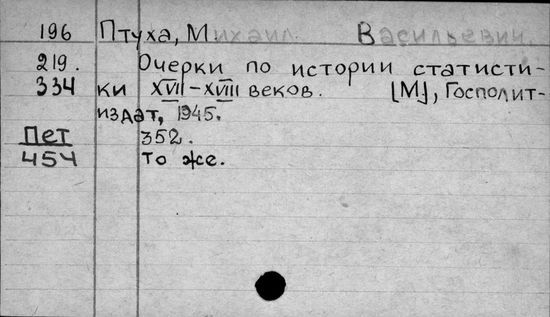 196 Птуха, Михаил Васильевич.
219. Очерки по истории статисти-
334 ки XVII–XVIII веков. [М], Госполит-
издат, 1945.
Пет 352.
454 То же.